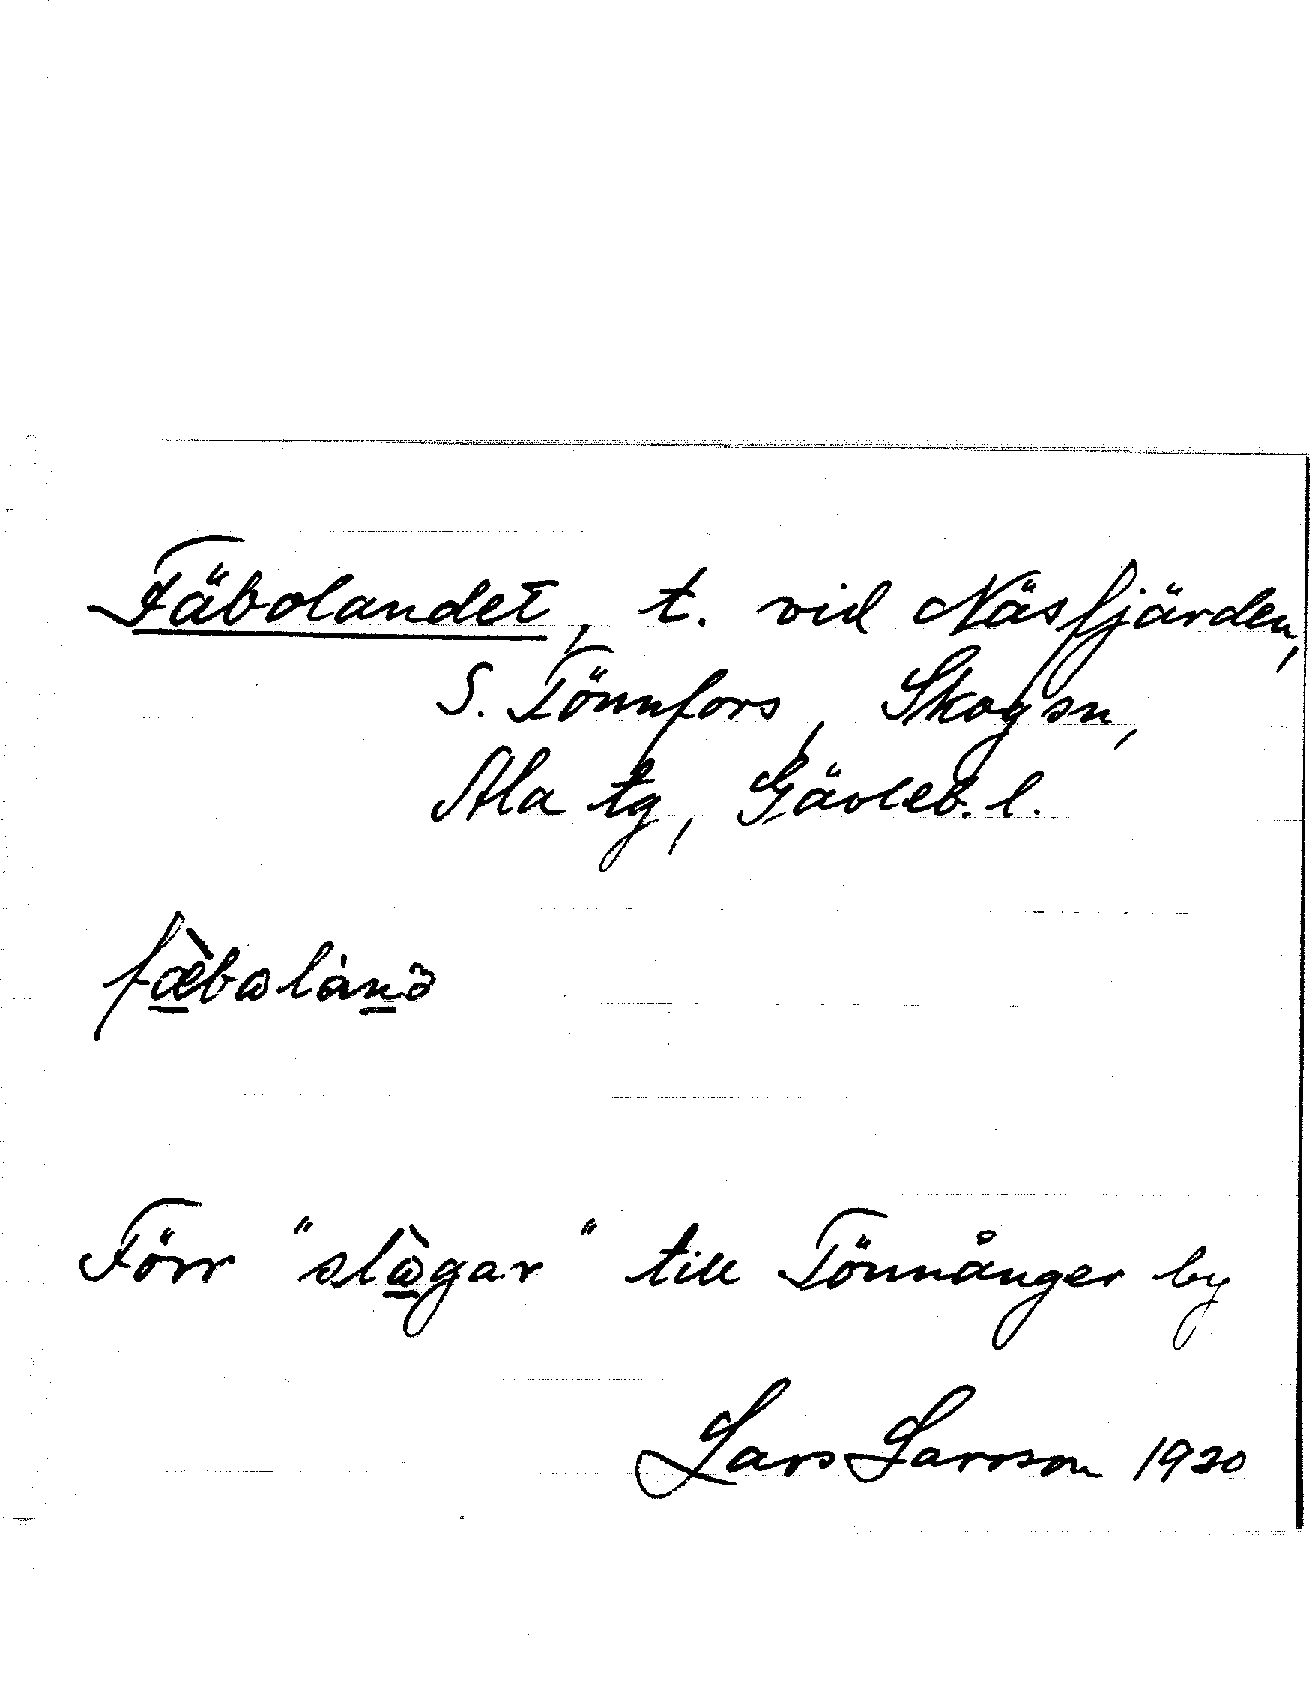 Fäbolandet, t. vid Näsfjärden,
S. Tönnfors, Skogsn,
Ala tg, Gävleb. l.
fæ̀bωlànə
Förr "slὼgar" till Tönnånger by
Lars Larsson 1920